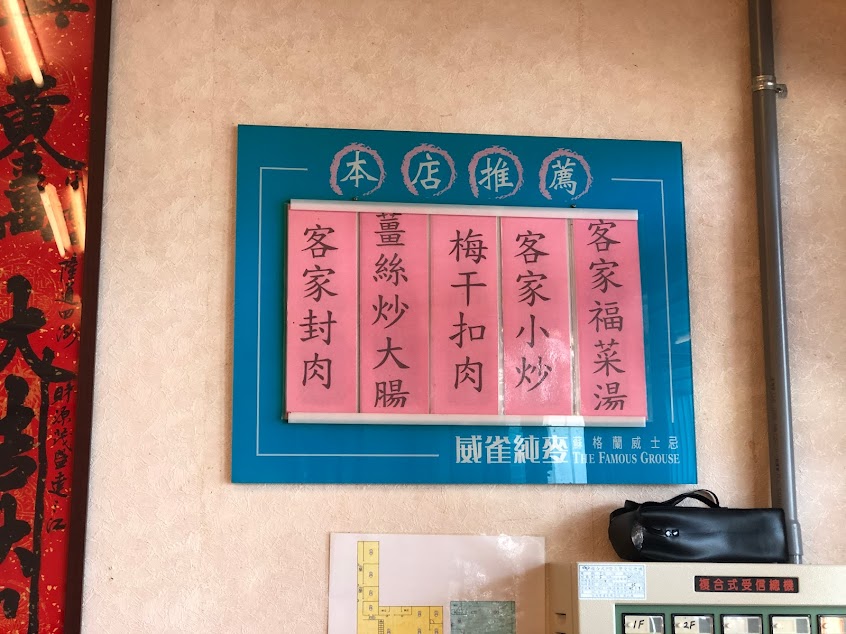 本店推薦
客家福菜湯
客家小炒
梅干扣肉
薑絲炒大腸
客家封肉
威雀純麥 蘇格蘭威士忌
THE FAMOUS GROUSE
複合式受信總機
1F 2F